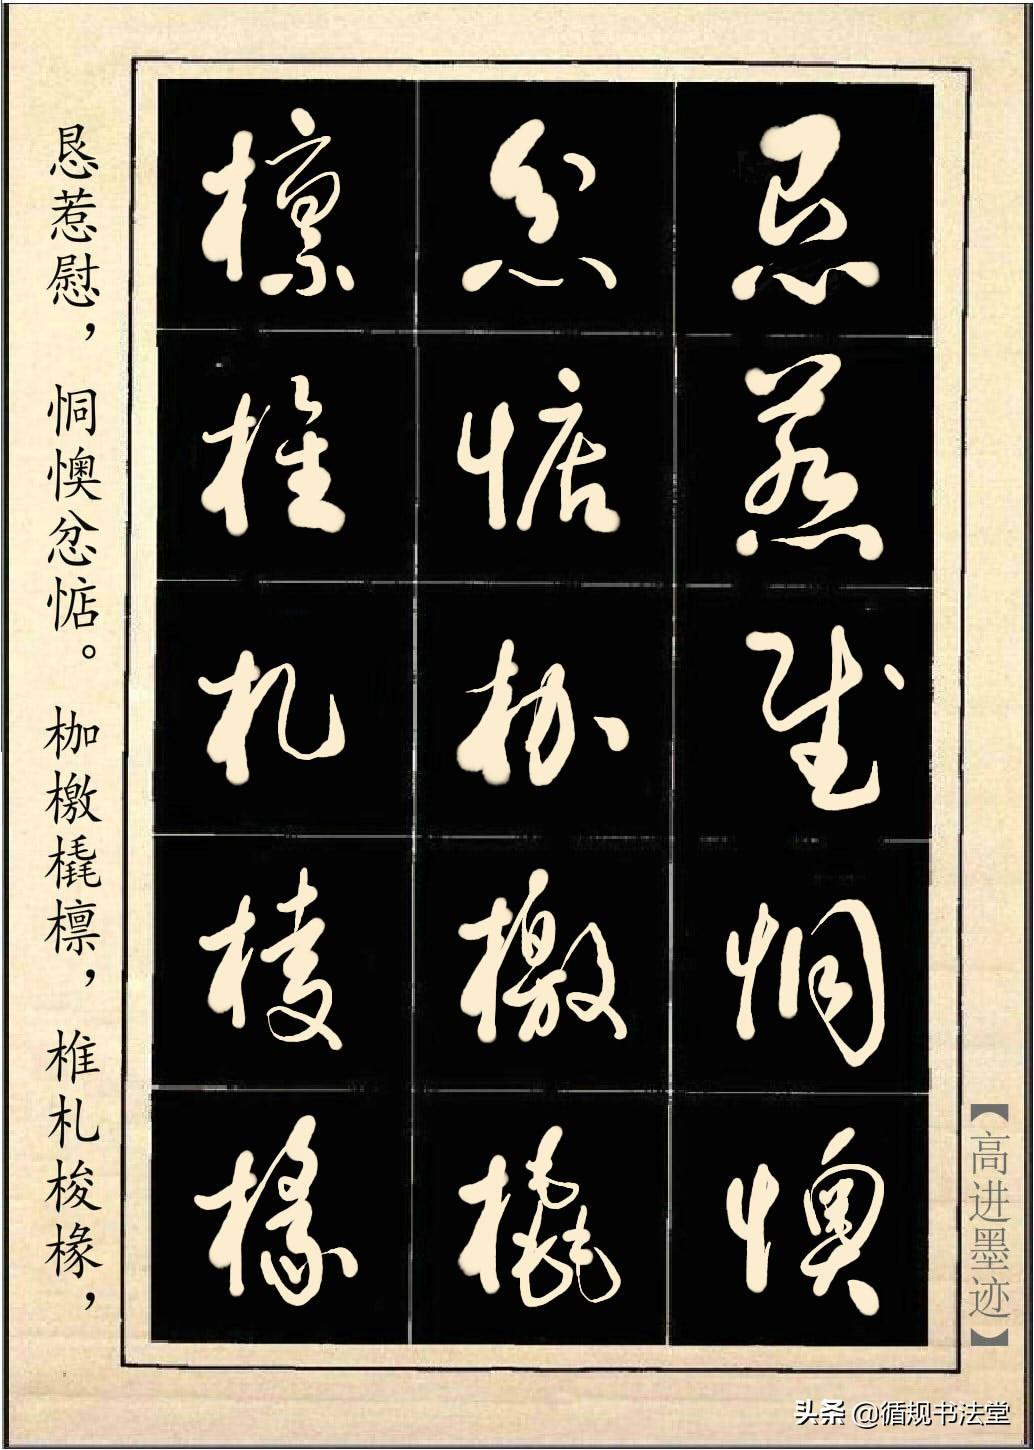 【高进墨迹】
恳惹慰恫懊
忿惦枷檄橇
檩椎札梭椽
恳惹慰，恫懊忿惦。枷檄橇檩，椎札梭椽，
头条 @循规书法堂